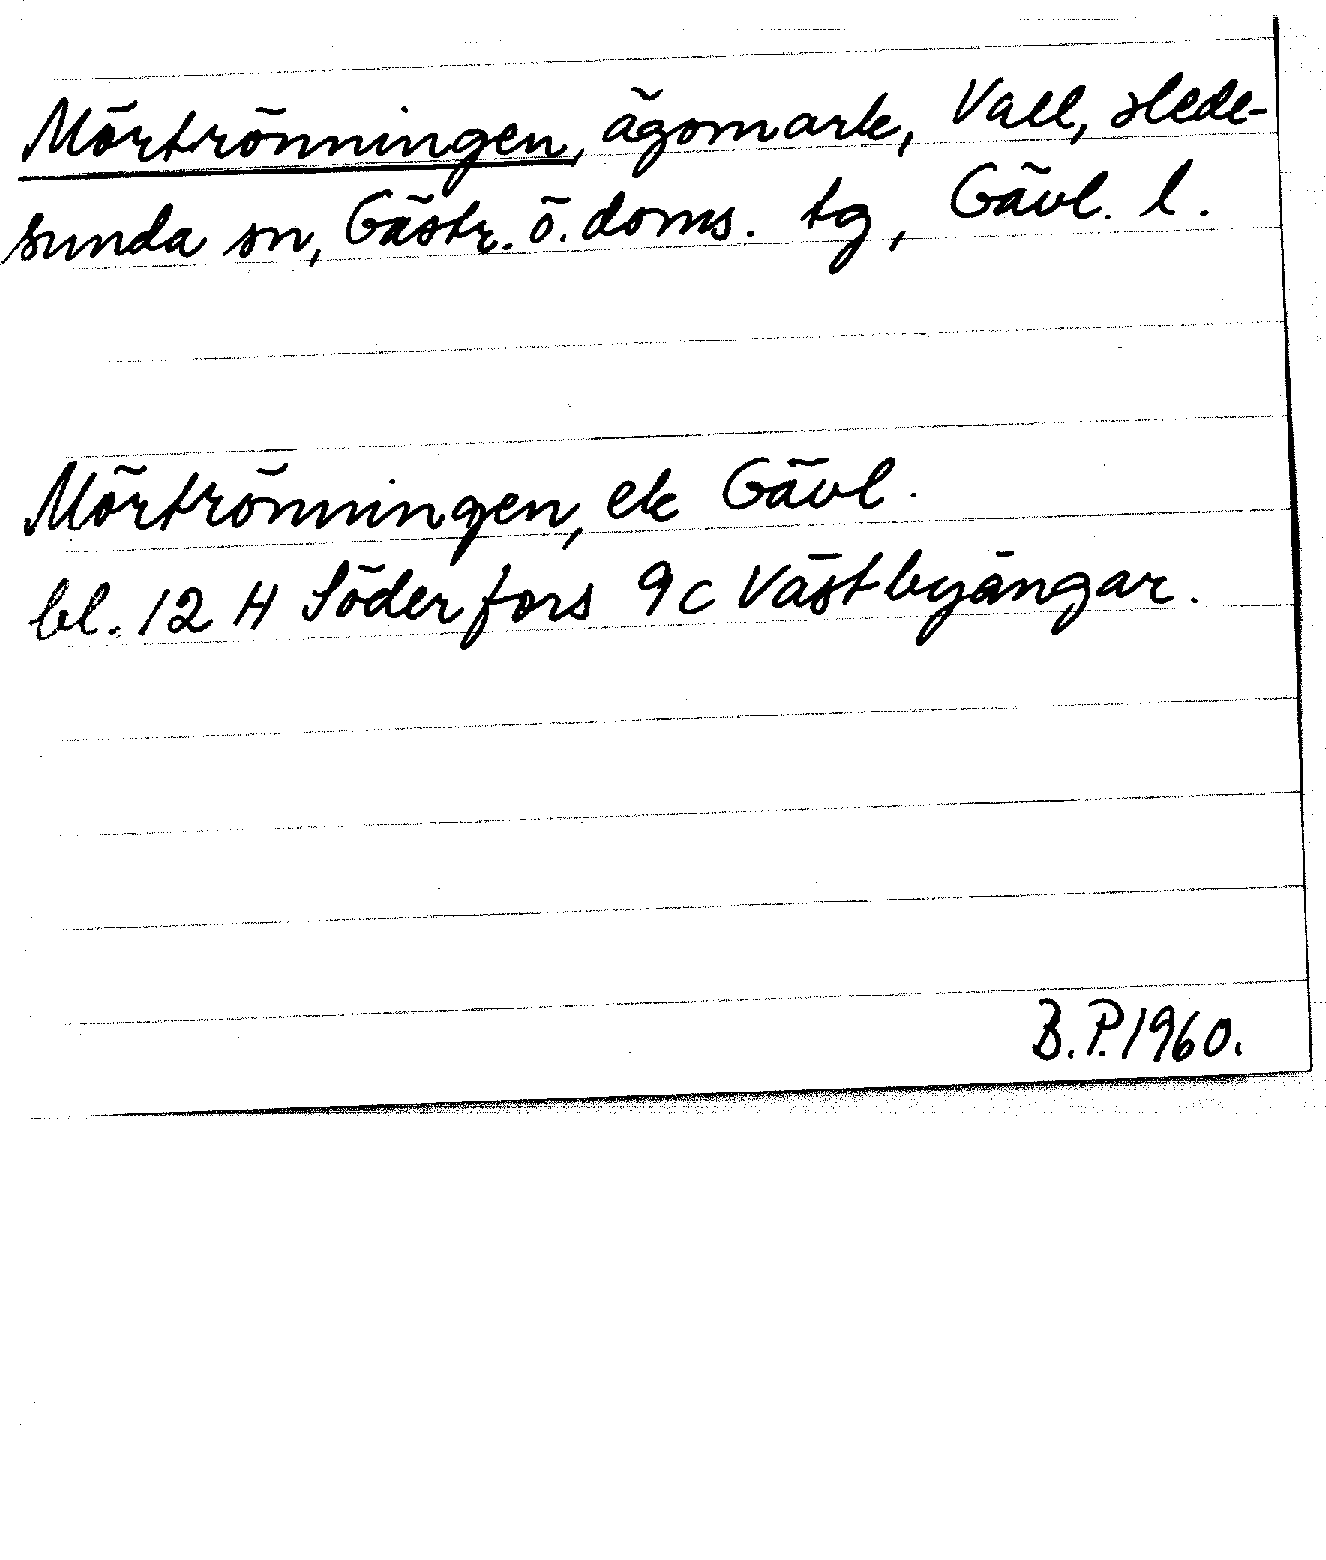 Mörtrönningen, ägomark, Vall, Hede-
sunda sn, Gästr. ö. doms. tg, Gävl. l.
Mörtrönningen, ek Gävl.
bl. 12 H Söderfors 9c Västbyängar.
B.P. 1960.